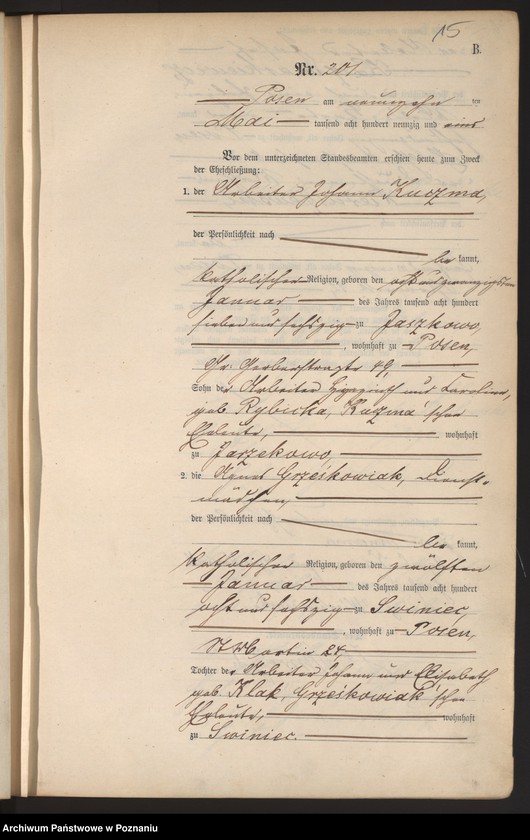 15
B.
Nr. 201
Posen am neunzehnten
Mai tausend acht hundert neunzig und eins
Vor dem unterzeichneten Standesbeamten erschien heute zum Zweck
der Eheschließung:
1. der Arbeiter Johann Kuczma,
der Persönlichkeit nach
be kannt,
katholischer Religion, geboren den acht und zwanzigsten
Januar des Jahres tausend acht hundert
sieben und sechszig zu Jaszkowo,
, wohnhaft zu Posen,
Gr: Gerberstraße 49,
Sohn der Arbeiter Hyazinth und Karoline,
geb. Rybicka, Kuczma'schen
Eheleute, wohnhaft
zu Jaszkowo,
2. die Agnes Grześkowiak, Dienst-
mädchen,
der Persönlichkeit nach
be kannt,
katholischer Religion, geboren den zwölften
Januar des Jahres tausend acht hundert
acht und sechszig zu Swiniec,
, wohnhaft zu Posen,
St Martin 24,
Tochter der Arbeiter Johann und Elisabeth
geb. Klak, Grześkowiak'schen
Eheleute, wohnhaft
zu Swiniec.
Archiwum Państwowe w Poznaniu